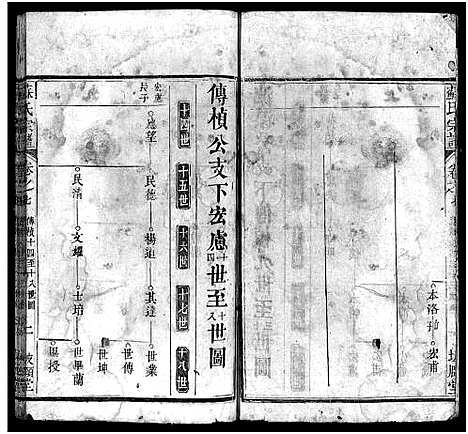 蘇氏宗譜
本洛
宏甫
傳楨公支下宏慮十四世至十八世圖
十四世
十五世
十六世
十七世
十八世
宏慮長子
應望
民德
楊道
其達
世業
世傳
世坤
民清
文燿
士培
世畢蘭
蘇氏宗譜
卷之七
傳楨十四至十八世圖
二